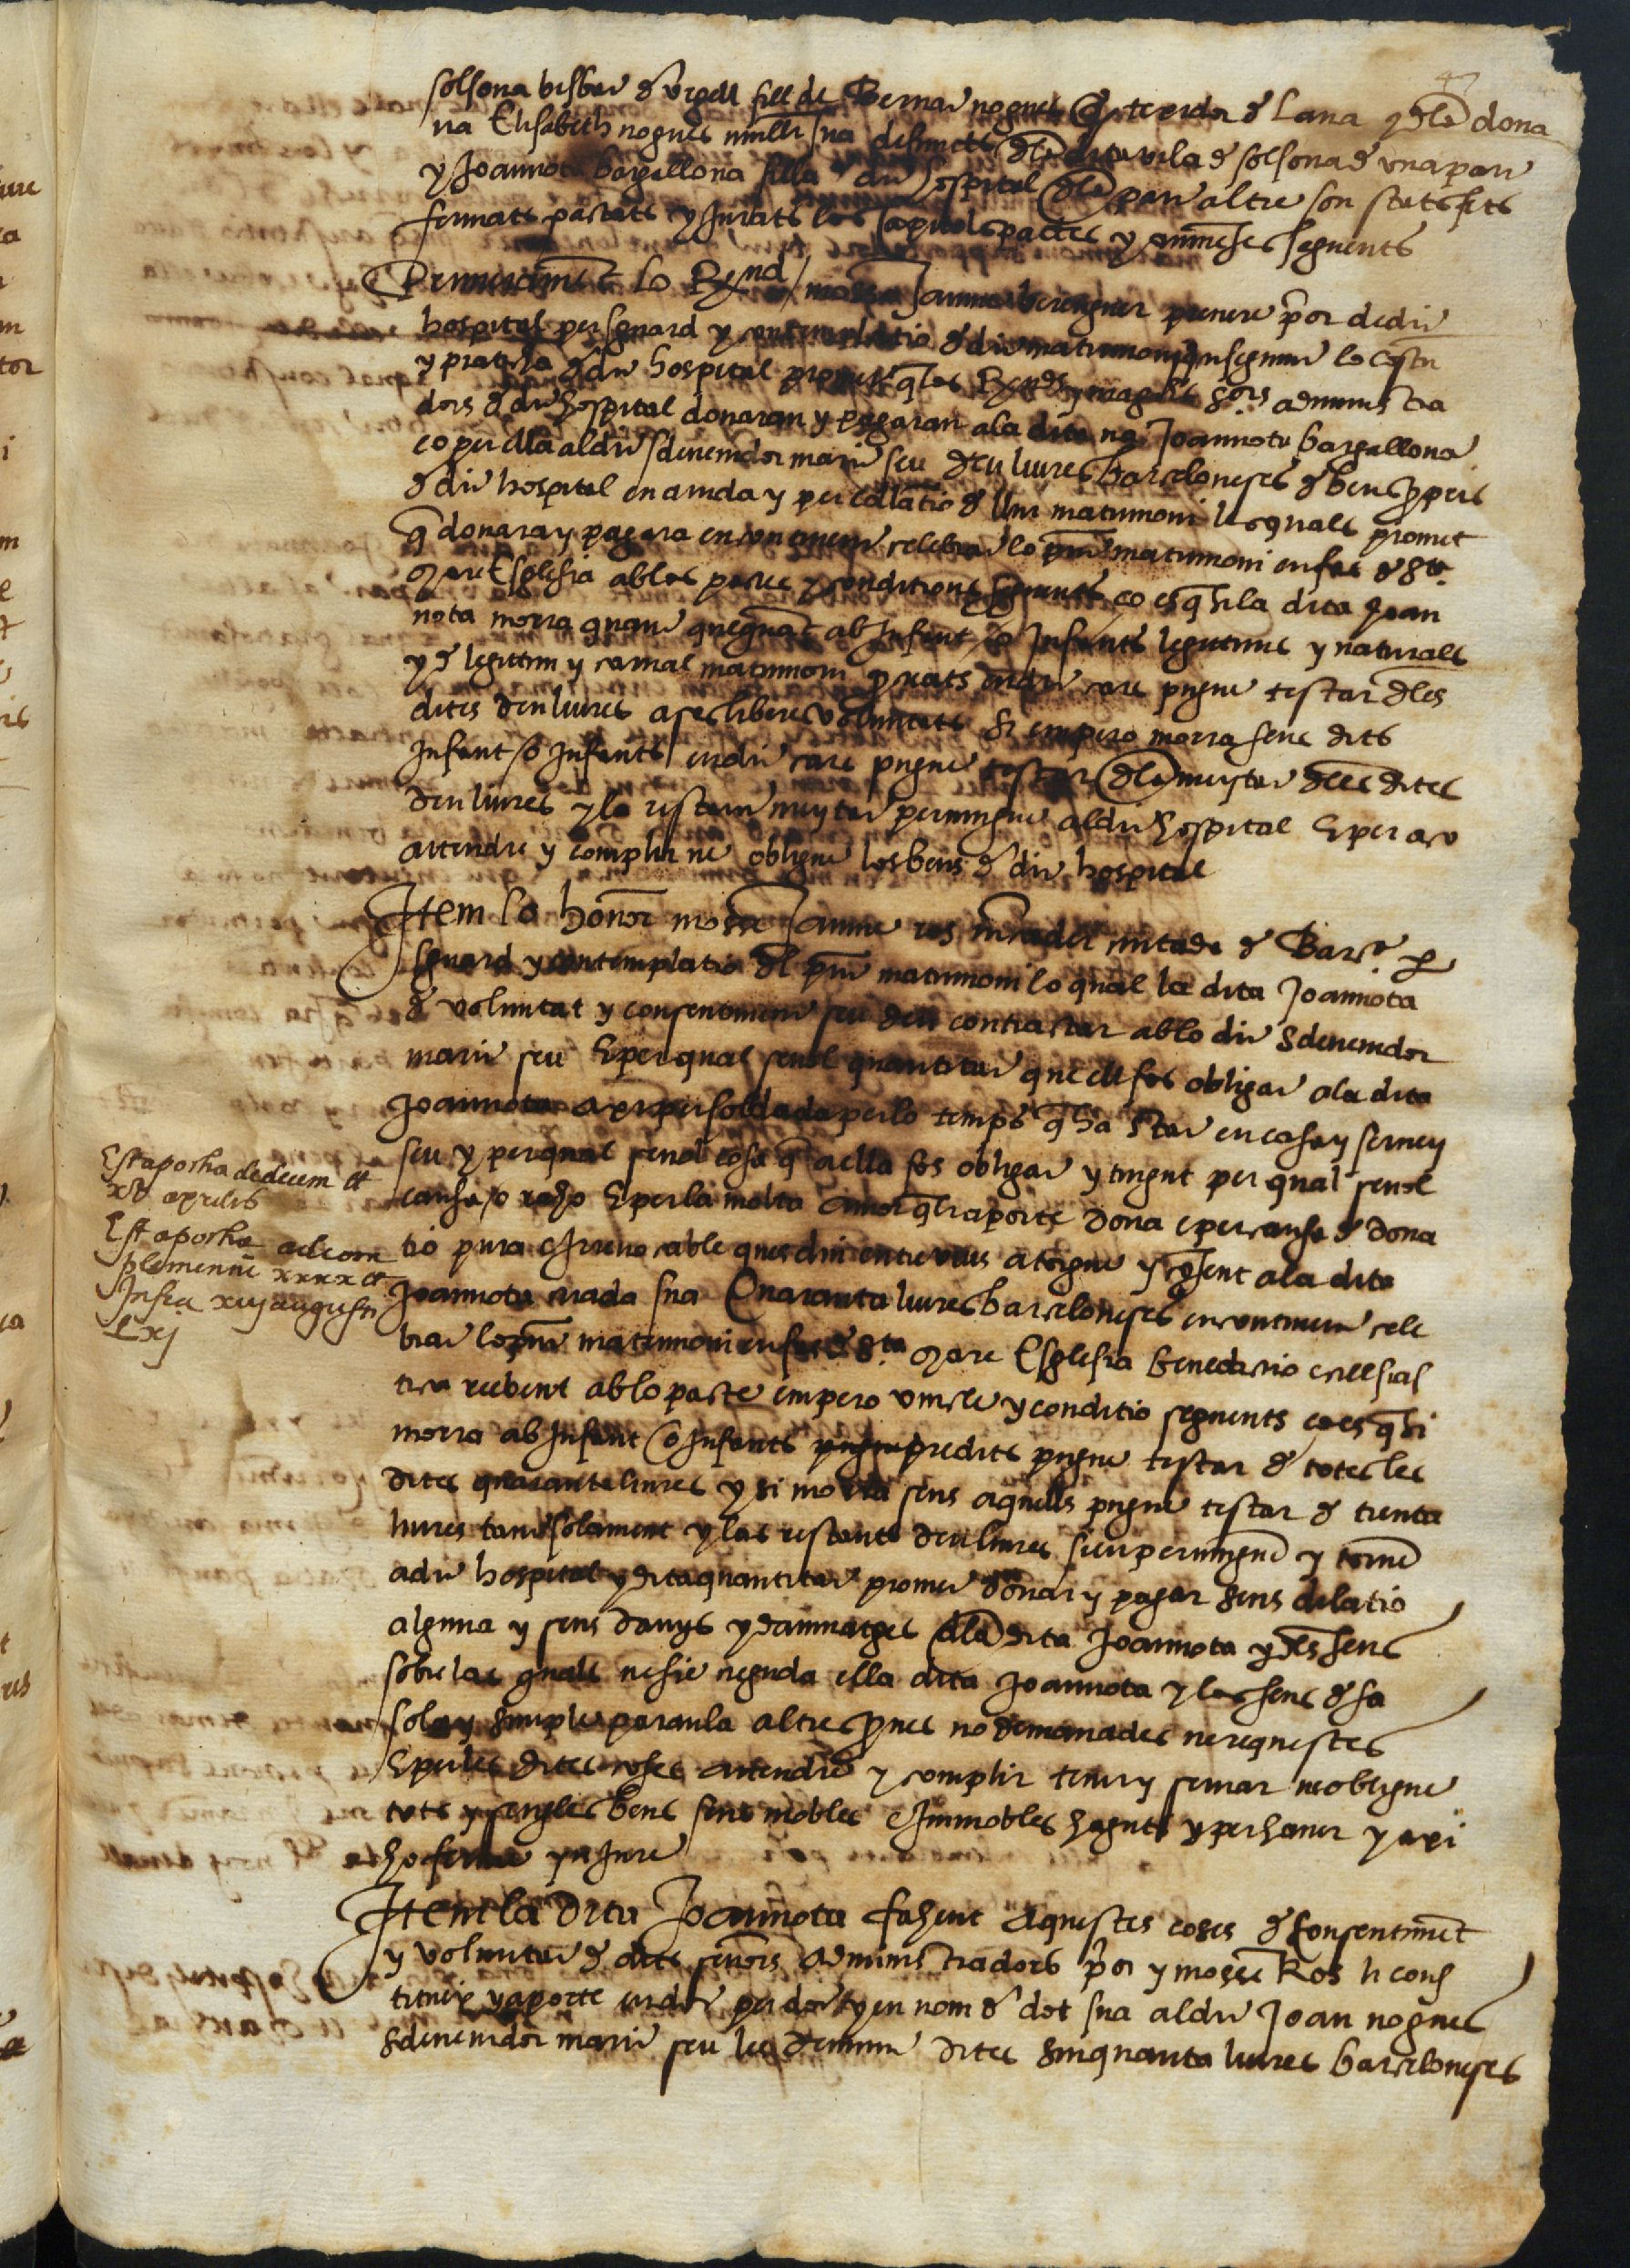 47
solsona bisbat d Urgell fill de Bernat nogues texidor d Lana y dla dona
na Elisabeth nogues muller sua defuncts dla dita vila d solsona d una part
y Joannota bargallona filla d dit hospital dla part altre son stats fets
fermats pactats y Jurats los Capitols pactes y avineses seguents
Primerament lo Rnd mossen Jaume berenguer prevere pror de dit
hospital per sguard y contemplatio d dit matrimoni, seguint lo costu
y pratica d dit hospital promet q los Rnds y magchs Sors administra
dors d dit hospital donaran y pagaran ala dita na Joannota bargallona
co per ella aldit sdevenidor marit seu deu liures barceloneses d bens propris
d dit hospital en aiuda y per collatio d llur matrimoni les quals promet
q donara y pagara encontinent celebrat lo pnt matrimoni en fas d Sta
Mare Esglesia ab los pactes y conditions seguents co es q si la dita Joan
nota morra quant que quant ab Infant /o Infants legitims y naturals
y d legitim y carnal matrimoni procreats en dit cars pugue testar dles
dites deu liures a ses liberes voluntats Si empero morra sens dits
Infant /o Infants en dit cars pugue testar dla meytat dles dites
deu liures y la restant meytat pervingue aldit hospital E per aco
attendre y complir ne obligue los bens d dit hospital
Item lo honor mosse Jaume ros mercader ciutada d Barna per
sguard y contemplatio dl pnt matrimoni lo qual la dita Joannota
d voluntat y consentiment seu deu contractar ab lo dit sdevenidor
marit seu E per qual sevol quantitat que ell fos obligat ala dita
Joannota axi per soldada per lo temps q ha Stat en casa y servey
seu y per qual sevol cosa q a ella fos obligat y tingut per qual sevol
causa /o raho E per la molta amor q li aporte dona e per causa d dona
tio pura e Irrevocable ques diu entre vius atorgue y consent ala dita
Joannota criada sua Quaranta liures barceloneses encontinent cele
brat lo pnt matrimoni en fas d Sta Mare Esglesia benedictio ecclesias
tica rebent ab lo pacte empero vincle y conditio seguents co es q si
morra ab Infant /o Infants predits pugue testar d totes les
dites quaranta liures y si morra sens aquells pugue testar d trenta
liures tant solament y las restants deu liures pervingue y torne
a dit hospital y dita quantitat promet donar y pagar sens dilatio
alguna y sens danys y damnatges dla dita Joannota y dls seus
sobre las quals ne sie reguda ella dita Joannota y los seus d sa
sola y simple paraula altres proves no demanades ne requestes
E per les dites coses attendre y complir tenir y servar ne obligue
tots y sengles bens seus mobles e Immobles haguts y per haver y axi
ho ferme y u Jure
Item la dita Joannota fahent aquestes coses d Consentiment
y voluntat d dits senors administradors pror y mosse Ros li cons
titueix y aporte en dot per dot y en nom d dot sua aldit Joan nogues
sdevenidor marit seu les demunt dites Sinquanta liures barceloneses
Est apocha de decem ll
xv aprilis
Est apocha ad com
plementum xxxx ll
Infra xiij augusti
Lxj